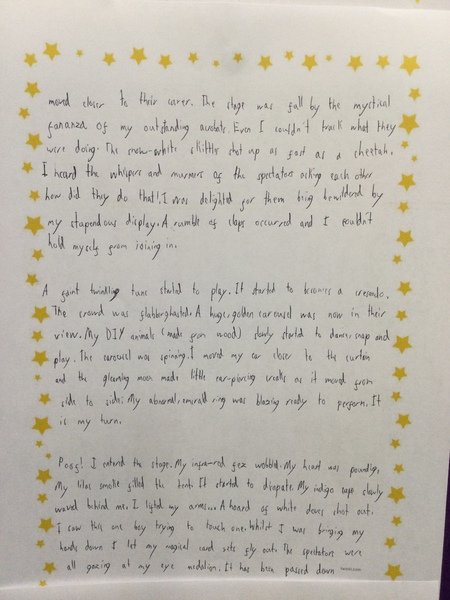 moved closer to their corer. The stage was full by the mystical
fananza of my outstanding acrobats. Even I couldn't track what they
were doing. The snow-white skittles shot up as fast as a cheetah.
I heard the whispers and murmers of the spectators asking each other
how did they do that!. I was delighted for them being bewildered by
my stupendous display. A rumble of claps occurred and I couldn't
hold myself from joining in.
A faint twinkling tune started to play. It started to becomes a cresendo.
The crowd was flabberghasted. A huge, golden carousel was now in their
view. My DIY animals (made from wood) slowly started to dance, snap and
play. The carousel was spinning. I moved my ear closer to the curtain
and the gleaming moon made little ear-piercing creaks as it moved from
side to side. My abnormal, emerald ring was blazing ready to perform. It
is my turn.
Poof! I entered the stage. My infra-red fez wobbled. My heart was pounding.
My lilac smoke filled the tent. It started to disapate. My indigo cape slowly
waved behind me. I lifted my arms... A hoard of white doves shot out.
I saw this one boy trying to touch one. Whilst I was bringing my
hands down I let my magical card sets fly out. The spectators were
all gazing at my eye medalion. It has been passed down
twinkl.com